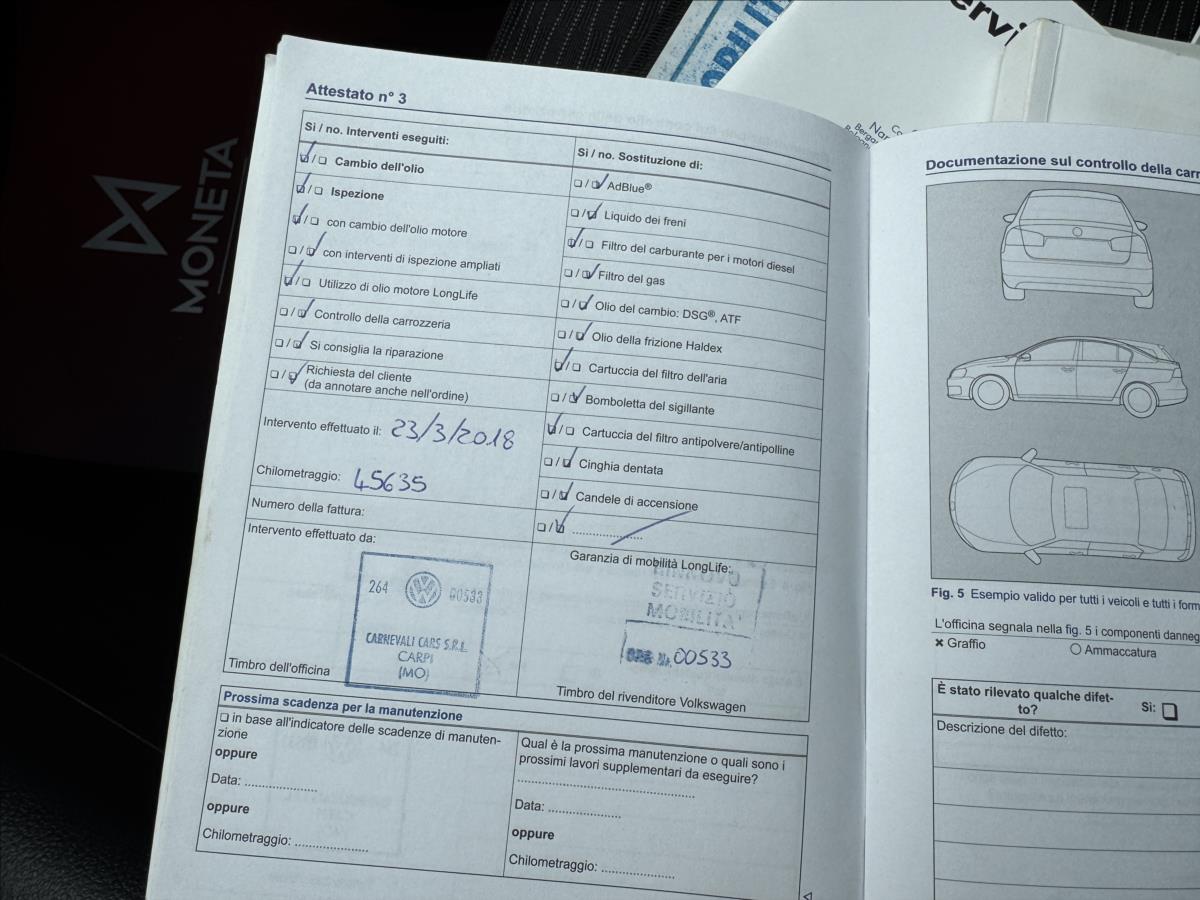 Attestato n° 3
Sì / no. Interventi eseguiti:
❑/❑ Cambio dell'olio
❑/❑ Ispezione
❑/❑ con cambio dell'olio motore
❑/❑ con interventi di ispezione ampliati
❑/❑ Utilizzo di olio motore LongLife
❑/❑ Controllo della carrozzeria
❑/❑ Si consiglia la riparazione
❑/❑ Richiesta del cliente
(da annotare anche nell'ordine)
Intervento effettuato il: 23/3/2018
Chilometraggio: 45635
Numero della fattura:
Intervento effettuato da:
264 00533
CARNEVALI CARS S.R.L.
CARPI
(MO)
Timbro dell'officina
Sì / no. Sostituzione di:
❑/❑ AdBlue®
❑/❑ Liquido dei freni
❑/❑ Filtro del carburante per i motori diesel
❑/❑ Filtro del gas
❑/❑ Olio del cambio: DSG®, ATF
❑/❑ Olio della frizione Haldex
❑/❑ Cartuccia del filtro dell'aria
❑/❑ Bomboletta del sigillante
❑/❑ Cartuccia del filtro antipolvere/antipolline
❑/❑ Cinghia dentata
❑/❑ Candele di accensione
❑/❑ ....................
Garanzia di mobilità LongLife:
RINNOVO
SERVIZIO
MOBILITA'
00533
Timbro del rivenditore Volkswagen
Prossima scadenza per la manutenzione
❑ in base all'indicatore delle scadenze di manuten-
zione
oppure
Data: ....................
oppure
Chilometraggio: ....................
Qual è la prossima manutenzione o quali sono i
prossimi lavori supplementari da eseguire?
..................................................
Data: ....................
oppure
Chilometraggio: ....................
Documentazione sul controllo della carr
Fig. 5 Esempio valido per tutti i veicoli e tutti i form
L'officina segnala nella fig. 5 i componenti danneg
✖ Graffio
○ Ammaccatura
È stato rilevato qualche difet-
to?
Sì: ❑
Descrizione del difetto:
MONETA
ervi